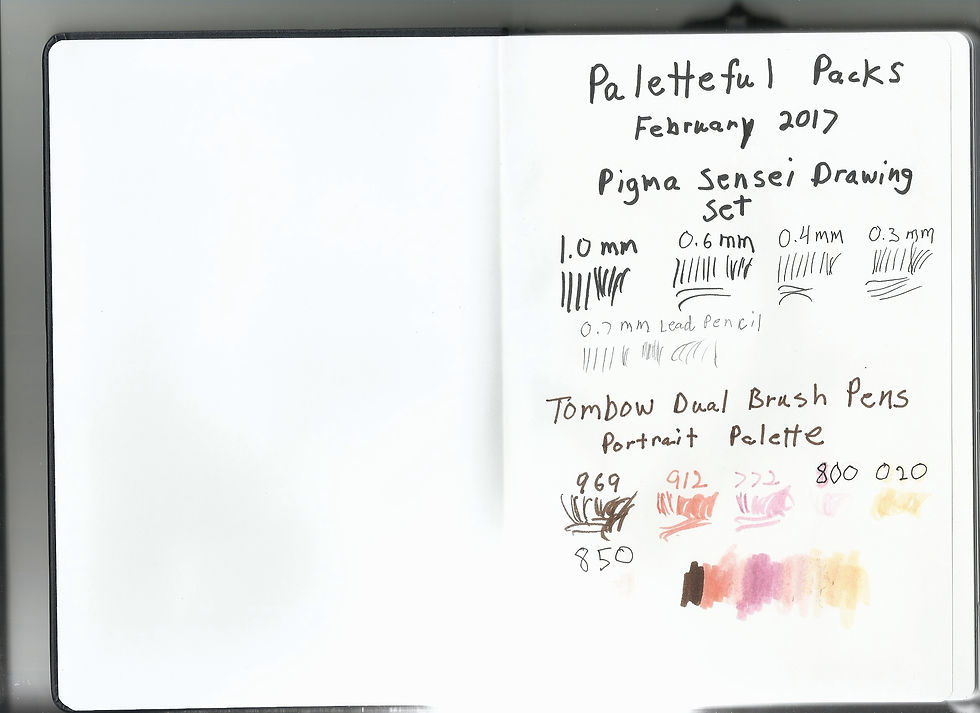 Paletteful Packs
February 2017
Pigma Sensei Drawing
Set
1.0 mm 0.6 mm 0.4 mm 0.3 mm
0.7 mm Lead Pencil
Tombow Dual Brush Pens
Portrait Palette
969 912 772 800 020
850